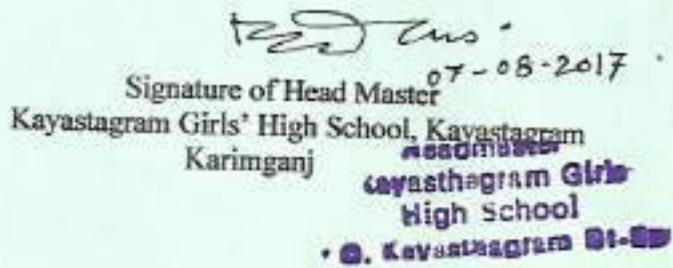 07-08-2017
Signature of Head Master
Kayastagram Girls' High School, Kayastagram
Karimganj
Headmaster
Kayasthagram Girls
High School